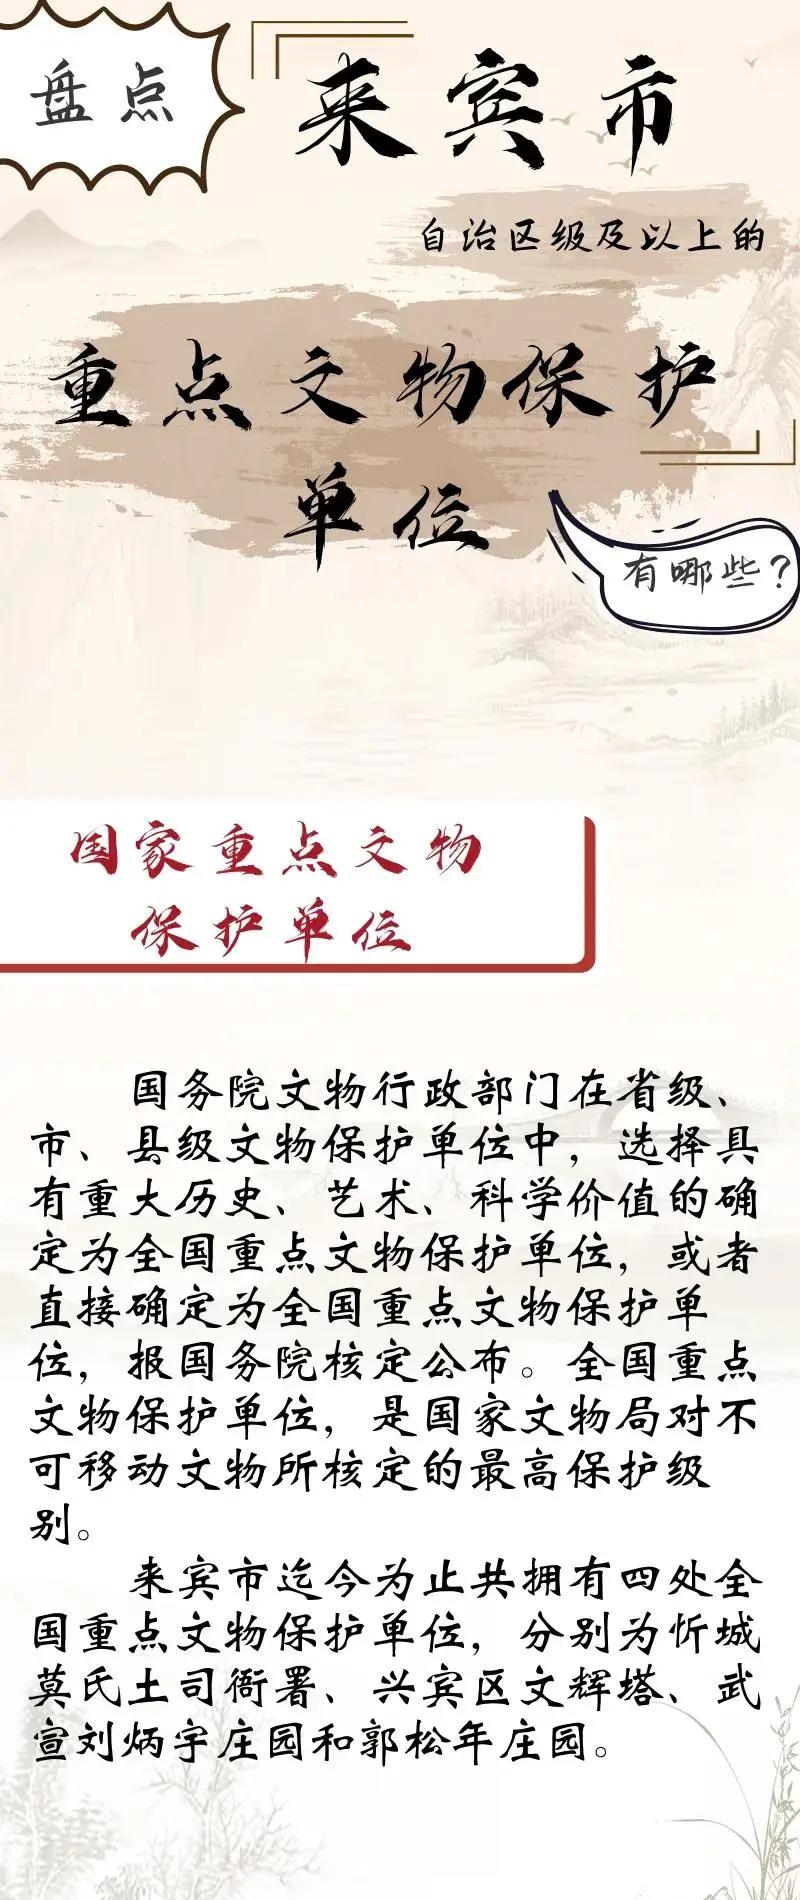 盘点
来宾市
自治区级及以上的
重点文物保护
单位
有哪些？
国家重点文物
保护单位
国务院文物行政部门在省级、
市、县级文物保护单位中，选择具
有重大历史、艺术、科学价值的确
定为全国重点文物保护单位，或者
直接确定为全国重点文物保护单
位，报国务院核定公布。全国重点
文物保护单位，是国家文物局对不
可移动文物所核定的最高保护级
别。
来宾市迄今为止共拥有四处全
国重点文物保护单位，分别为忻城
莫氏土司衙署、兴宾区文辉塔、武
宣刘炳宇庄园和郭松年庄园。